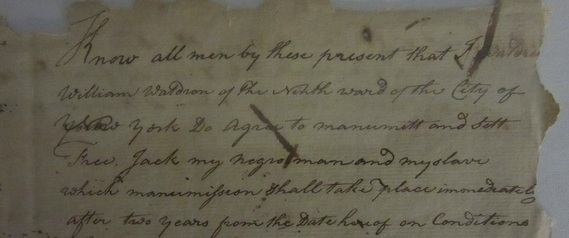 Know all men by these present that I
William Waldron of the Ninth ward of the City of
New York Do Agree to manumitt and Sett
Free. Jack my negro man and my slave
which manumission Shall take place immediately
after two years from the Date hereof on Conditions